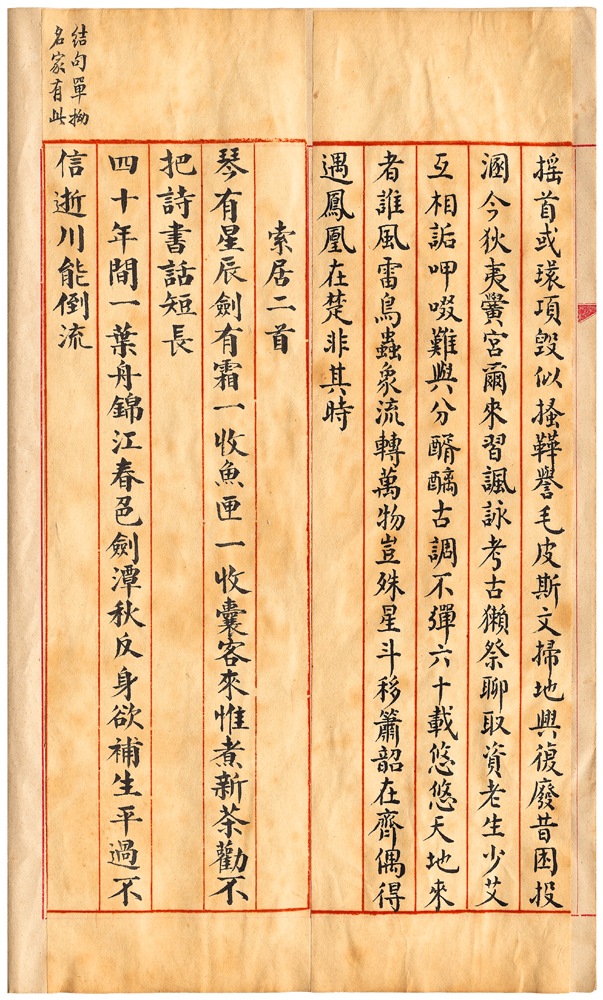 搖首或環項毀似搔鞾譽毛皮斯文掃地興復廢昔困投
溷今狄夷黌宮爾來習諷詠考古獺祭聊取資老生少艾
互相詬呷啜難與分醑醨古調不彈六十載悠悠天地來
者誰風雷鳥蟲象流轉萬物豈殊星斗移簫韶在齊偶得
遇鳳凰在楚非其時
索居二首
琴有星辰劍有霜一收魚匣一收囊客來惟煮新茶勸不
把詩書話短長
四十年間一葉舟錦江春色劍潭秋反身欲補生平過不
信逝川能倒流
結句單拗
名家有此